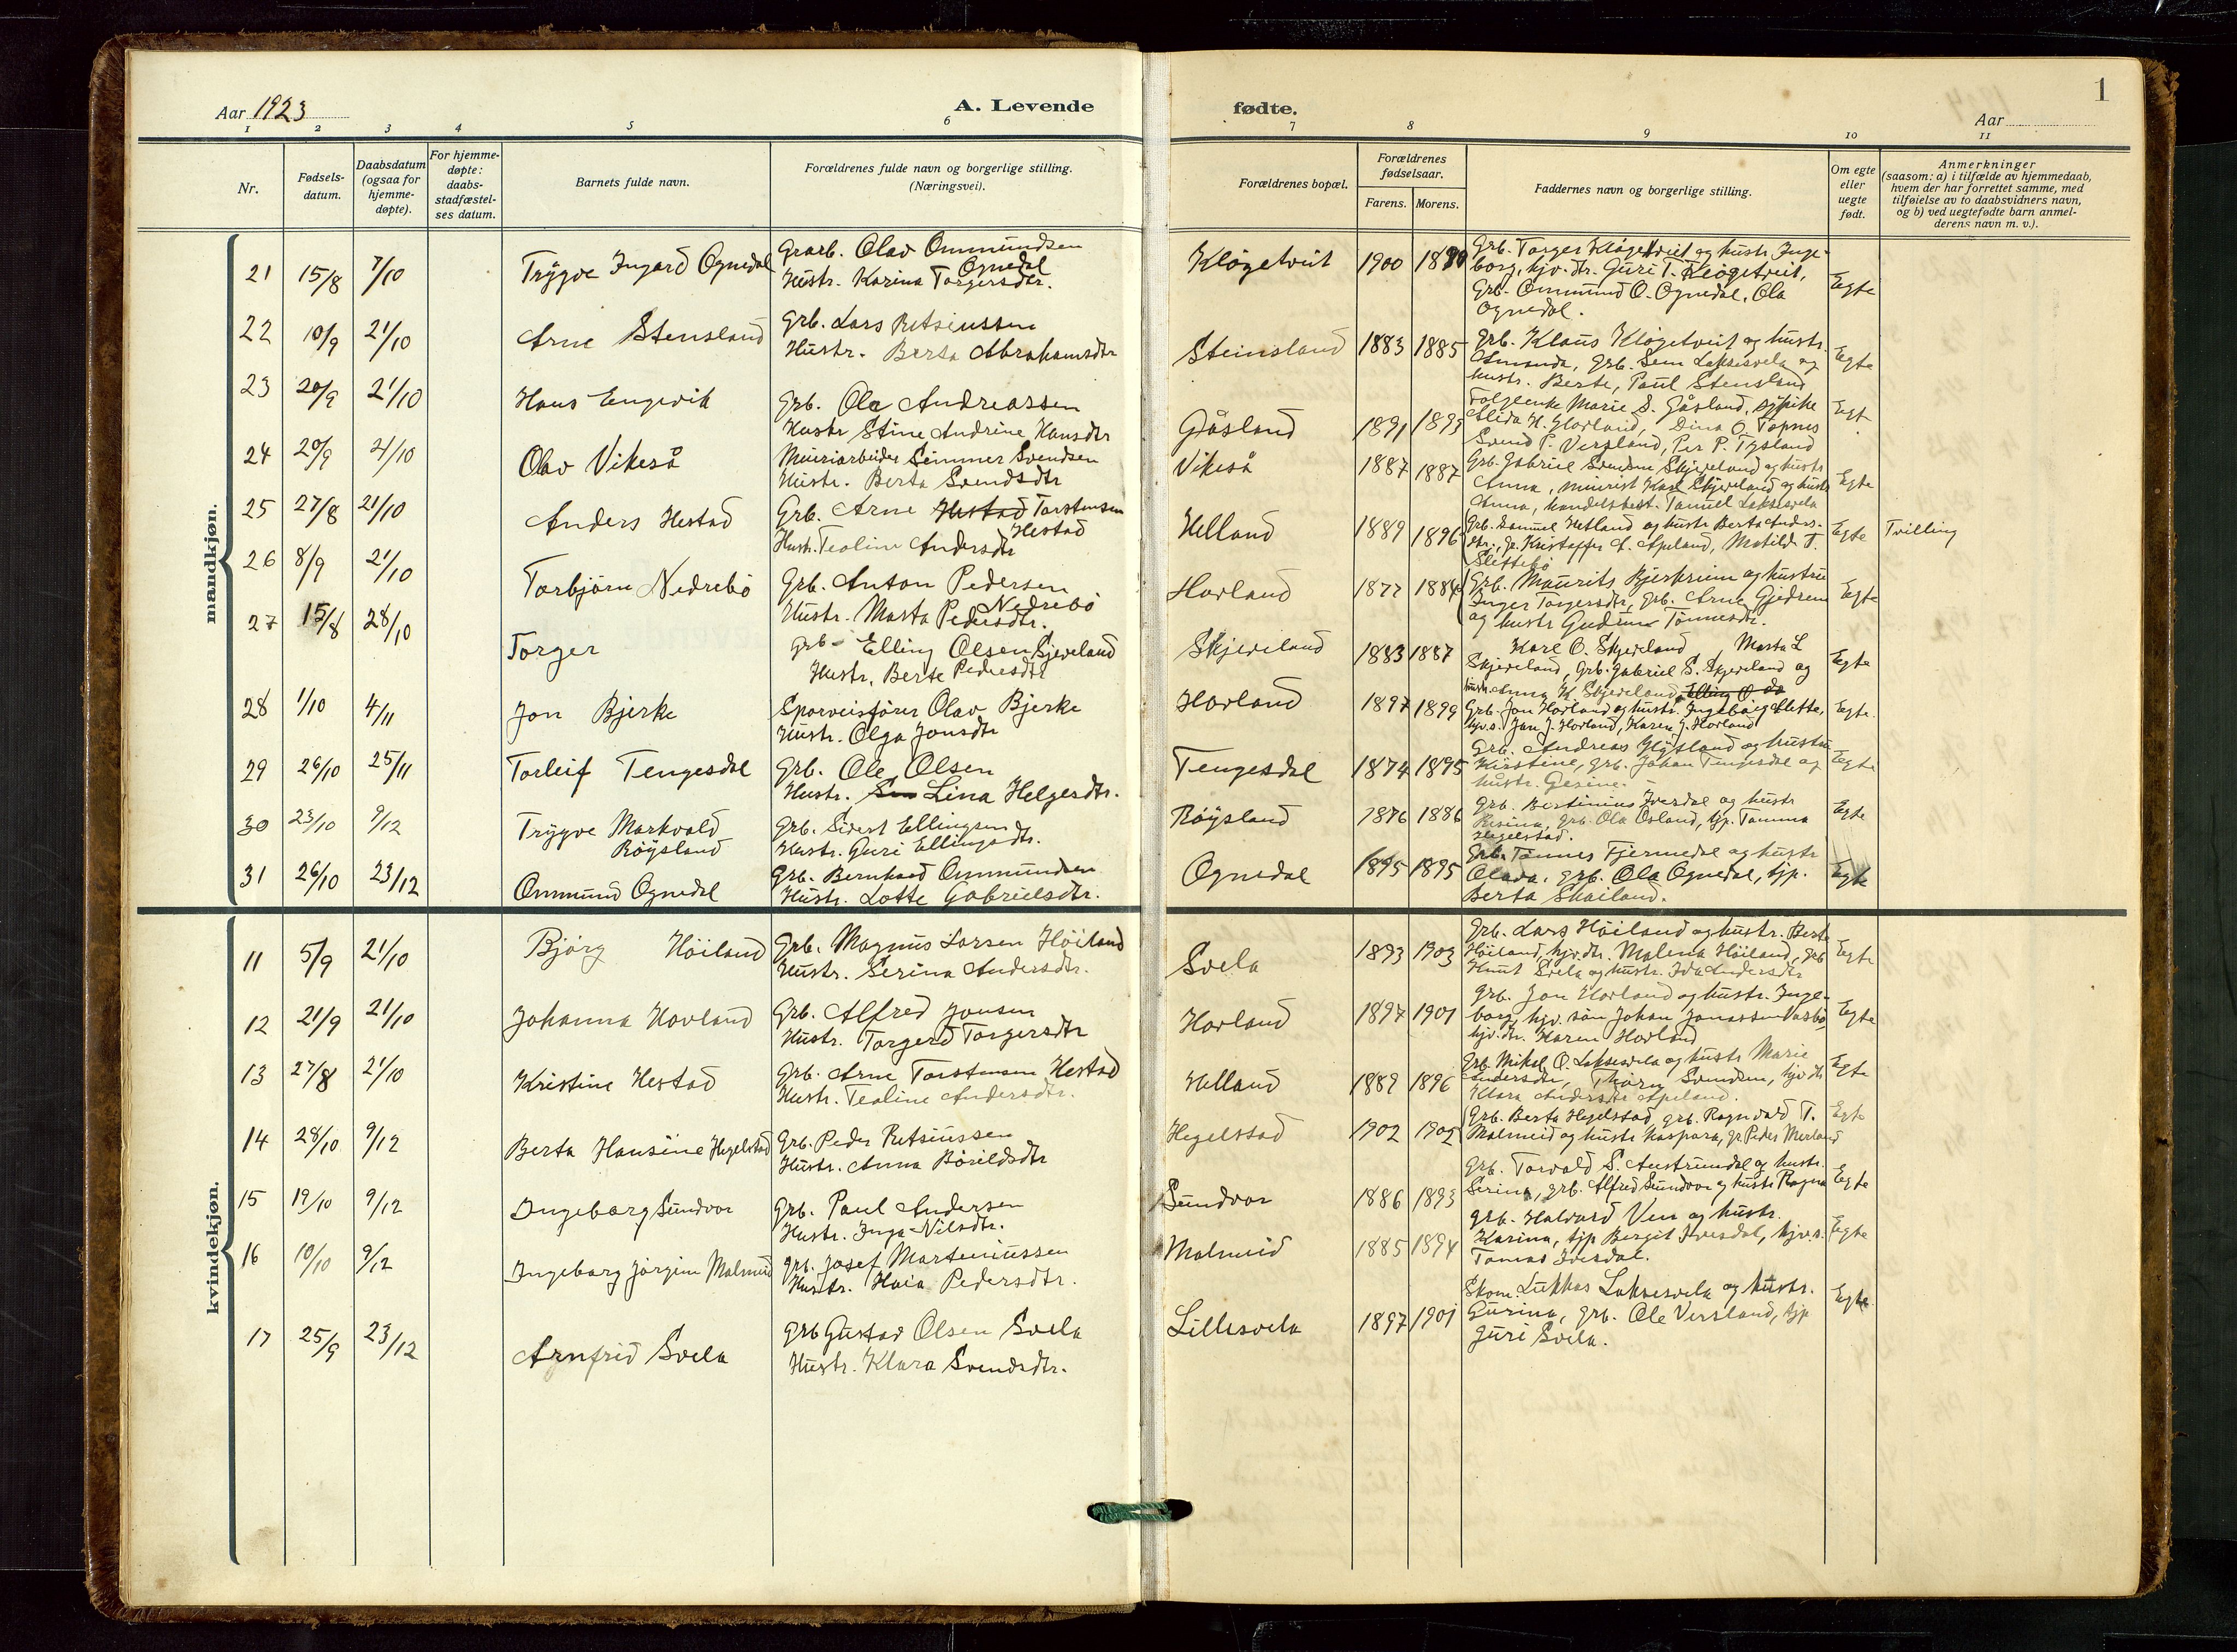 Aar 1923
A. Levende
fødte.
Aar
1
1 2 3 4 5 6 7 8 9 10 11
Nr.
Fødsels-
datum.
Daabsdatum
(ogsaa for
hjemme-
døpte).
For hjemme-
døpte:
daabs-
stadfæstel-
ses datum.
Barnets fulde navn.
Forældrenes fulde navn og borgerlige stilling.
(Næringsvei).
Forældrenes bopæl.
Forældrenes
fødselsaar.
Farens. Morens.
Faddernes navn og borgerlige stilling.
Om egte
eller
uegte
født.
Anmerkninger
(saasom: a) i tilfælde av hjemmedaab,
hvem der har forrettet samme, med
tilføielse av to daabsvidners navn,
og b) ved uegtefødte barn anmel-
derens navn m. v.).
mandkjøn.
21 15/8 7/10 Trygve Ingard Ognedal
Grarb. Olav Ommundsen
Ognedal
Hustr. Karina Torgersdtr.
Kløgetveit 1900
Grb. Torger Kløgetveit og hustr. Inge-
borg, hjv. dtr. Guri T. Kløgetveit,
Grb. Ommund O. Ognedal, Ola
Ognedal.
Egte
22 10/9 21/10 Arne Stensland
Grb. Lars Retsiussen
Hustr. Berta Abrahamsdtr
Steinsland 1883 1885
Grb. Klaus Kløgetveit og hustr.
Amanda, Grb. Sem Laksesvela og
hustr. Berte, Paul Stensland
Egte
23 20/9 21/10 Hans Engevik
Grb. Ola Andreassen
Hustr Stine Andrine Hansdtr
Gåsland 1891 1893
Marie S. Gåsland,
Alida H. Hovland, Dina O. Topnes
Svend P. Versland, Per P. Tysland
Egt.
24 20/9 21/10 Olav Vikeså
Meieriarbeider Simmer Svendsen
Hustr. Berta Svendsdtr
Vikeså 1887 1887
Grb. Gabriel Svendsen Skjeveland og hustr
Anna, meierist Karl Skjeveland og hustr
Anna, handelsbest. Tamuel Laksesvela
Egte
25 27/8 21/10 Anders Hestad
Grb. Arne Hestad Torstensen
Hestad
Hustr. Teoline Andersdtr
Helland 1889 1896
Grb. Samuel Hetland og hustr Berta Anders-
dtr., Kristoffer A. Apeland, Matilde T.
Slettebø
Egte Tvilling
26 8/9 21/10 Torbjørn Nedrebø
Grb. Anton Pedersen
Nedrebø
Hustr. Marta Pedersdtr.
Hovland 1877 1884
Grb. Maurits Bjerkreim og hustru
Inger Torgersdtr, Grb. Arne Gjedrem
og hustr Gudrun Tønnesdtr.
Egte
27 15/8 28/10 Torger
Grb. Elling Olsen Sjeveland
Hustr. Berte Pedersdtr
Skjeveland 1883 1887
Karl O. Skjeveland Marta L
Skjeveland, Grb. Gabriel S. Skjeveland og
hustr. Anna K Skjeveland, Elling O do
Egte
28 1/10 4/11 Jon Bjerke
Sporveisfører Olav Bjerke
Hustr. Olga Jonsdtr
Hovland 1897 1899
Grb. Jon Hovland og hustr. Ingeborg Slette,
hjv.s. Jan J. Hovland, Karen J. Hovland
Egte.
29 26/10 25/11 Torleif Tengesdal
Grb. Ole Olsen
Hustr. Lina Helgesdtr.
Tengesdal 1874 1895
Grb. Andreas Høysland og hustru
Kirstine, Grb. Johan Tengesdal og
hustr. Gesine.
Egte
30 23/10 9/12 Trygve Markvald
Røysland
Grb. Sivert Ellingsen
Hustr. Guri Ellingsdtr.
Røysland 1876 1886
Grb. Bertinius Ivesdal og hustr
Resina, Grb. Ola Osland, tjp. Tomina
Hegelstad.
Egte
31 26/10 23/12 Ommund Ognedal
Grb. Bernhard Ommundsen
Hustr. Lotte Gabrielsdtr.
Ognedal 1895 1895
Grb. Tønnes Fjermedal og hustr
Olava, Grb. Ola Ognedal, tjp.
Berta Skailand.
Egte
kvindekjøn.
11 5/9 21/10 Bjørg Høiland
Grb. Magnus Larsen Høiland
Hustr. Serina Andersdtr.
Svela 1893 1903
Grb. Lars Høiland og hustr. Berte
Høiland, hjv.dtr. Malena Høiland, Grb
Knut Svela og hustr. Ida Andersdtr
Egte
12 21/9 21/10 Johanna Hovland
Grb. Alfred Jonsen
Hustr. Torgerd Torgersdtr
Hovland 1897 1901
Grb. Jon Hovland og hustr. Inge-
borg, hjv. søn Johan Jonassen Vasbø,
hjv. dtr. Karen Hovland
Egte
13 27/8 21/10 Kristine Hestad
Grb. Arne Torstensen Hestad
Hustr. Teoline Andersdtr.
Helland 1889 1896
Grb. Mikal O. Laksesvela og hustr Marie
Andersdtr, Svendsen, hjv dtr
Klara Andersdtr Apeland.
Egte
14 28/10 9/12 Berta Hansine Hegelstad
Grb. Peder Retsiussen
Hustr. Anna Børildsdtr
Hegelstad 1902 1902
Grb. Berta Hegelstad, Grb. Ragnvald T.
Malmeid og hustr Kaspara, gr Peder Merland
Egte
15 19/10 9/12 Ingeborg Sundvor
Grb. Paul Andersen
Hustr. Inga Nilsdtr.
Sundvor 1886 1893
Grb. Torvald S. Austrumdal og hustr.
Serina, Grb. Alfred Sundvor og hustr Ragna
Egte
16 10/10 9/12 Ingeborg Jørgine Malmeid
Grb. Josef Marteniussen
Hustr. Haia Pedersdtr.
Malmeid 1885 1894
Grb. Halvard Ven og hustr.
Karina, tjp Bergit Ivesdal, hjv.s.
Tomas Ivesdal.
Egte
17 25/9 23/12 Arnfrid Svela
Grb Gustav Olsen Svela
Hustr. Klara Svendsdtr.
Lillesvela 1897 1901
Skom. Lukkas Laksesvela og hustr.
Gurina, Grb. Ole Versland, tjp
Guri Svela.
Egte